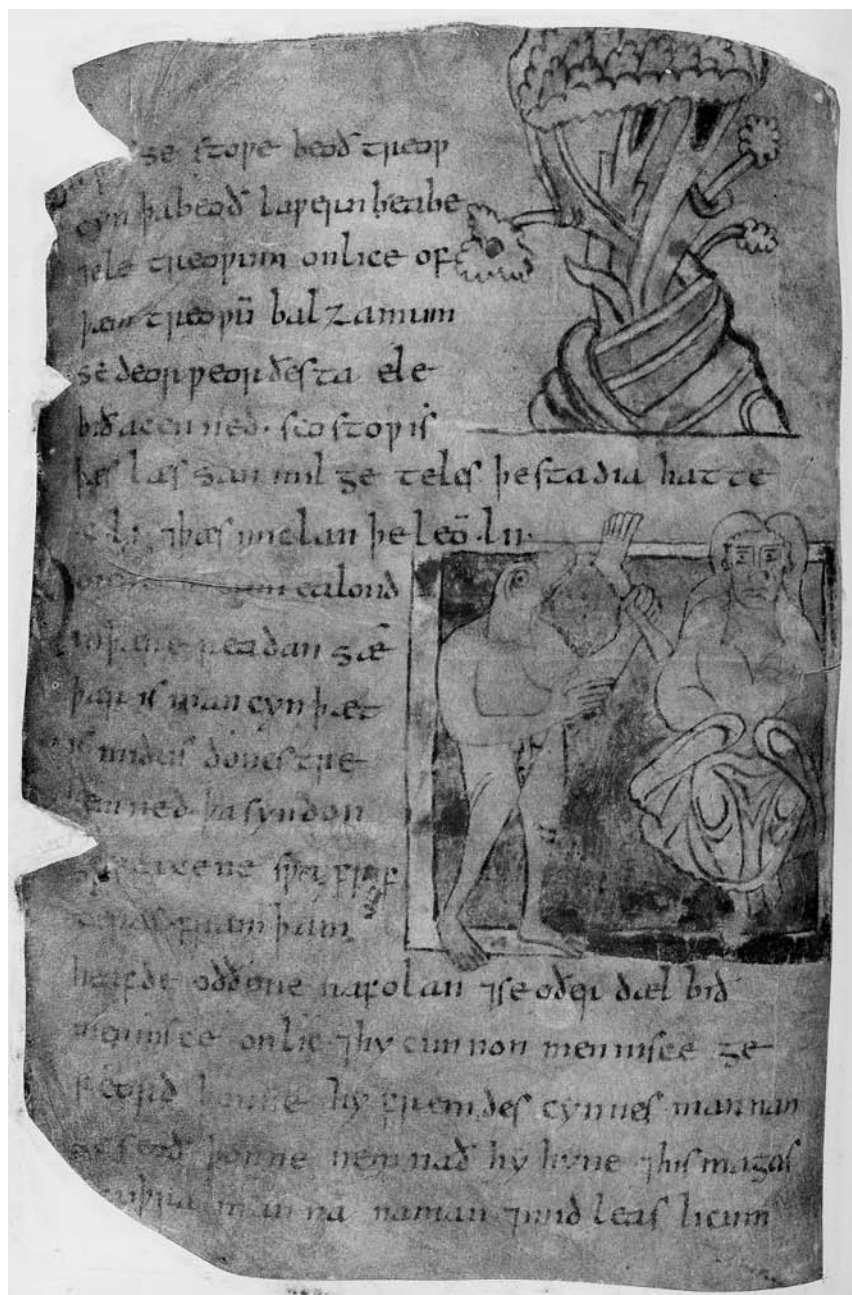 se stowe beoð treow
cyn þa beoð lawern beabe
7ele treowum onlice of
þæm treowū balzamum
se deorweorðesta ele
bið acenned. seo stow is
þæs læs san mil ge teles þe stadia hatte
li. 7þæs miclan þe leō .lii.
ealond
in þære readan sæ
þær is man cyn þæt
is mid us donestre
nemned. þa syndon
frif
teras. fram þam
heafde oððone nafolan 7se oðer dæl bið
mennisce onlic 7hy cunnon mennisce ge
reord þonne hy fremdes cynnes mannan
geseoð þonne nemnað hy hyne 7his magas
cuþra manna naman 7mid leas licum